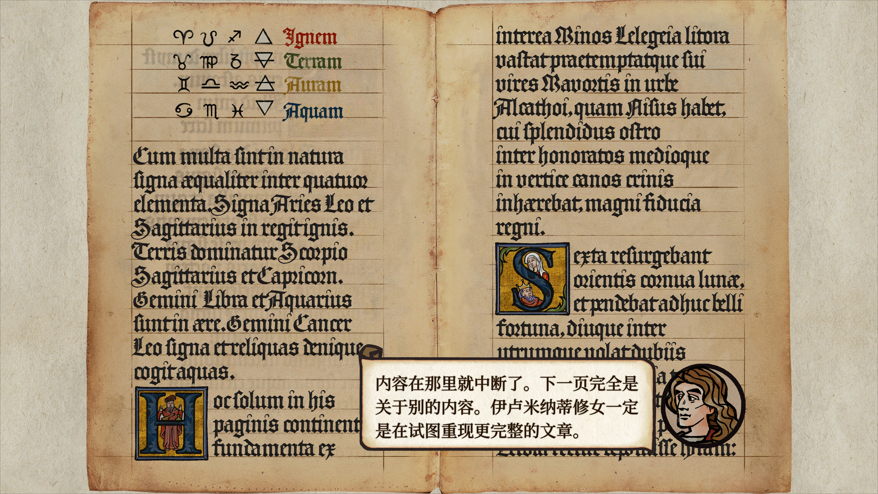 ♈ ♌ ♐ 🜂 Ignem
♉ ♍ ♑ 🜃 Terram
♊ ♎ ♒ 🜁 Auram
♋ ♏ ♓ 🜄 Aquam
Cum multa sint in natura
signa æqualiter inter quatuor
elementa. Signa Aries Leo et
Sagittarius in regit ignis.
Terris dominatur Scorpio
Sagittarius et Capricorn.
Gemini Libra et Aquarius
sunt in ære. Gemini Cancer
Leo signa et reliquas denique
cogit aquas.
Hoc solum in his
paginis continent
fundamenta ex
interea Minos Lelegeia litora
vastat praetemptatque sui
vires Mavortis in urbe
Alcathoi, quam Nisus habet,
cui splendidus ostro
inter honoratos medioque
in vertice canos crinis
inhærebat, magni fiducia
regni.
Sexta resurgebant
orientis cornua lunæ,
et pendebat adhuc belli
fortuna, diuque inter
utrumque volat dubiis
内容在那里就中断了。下一页完全是
关于别的内容。伊卢米纳蒂修女一定
是在试图重现更完整的文章。